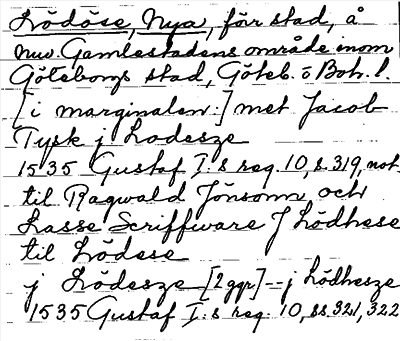 Lödöse, Nya, förr stad, å
nuv. Gamlestadens område inom
Göteborgs stad, Göteb. o Boh. l.
[i marginalen:] met Jacob
Tysk j Lodesze
1535 Gustaf I:s reg. 10, s. 319, not
til Ragwald Jönsonn och
Lasse Scriffware J Lödhese
til Lödese
j Lödesze [2 ggr] – j Lödhesze
1535 Gustaf I:s reg. 10, ss. 321, 322